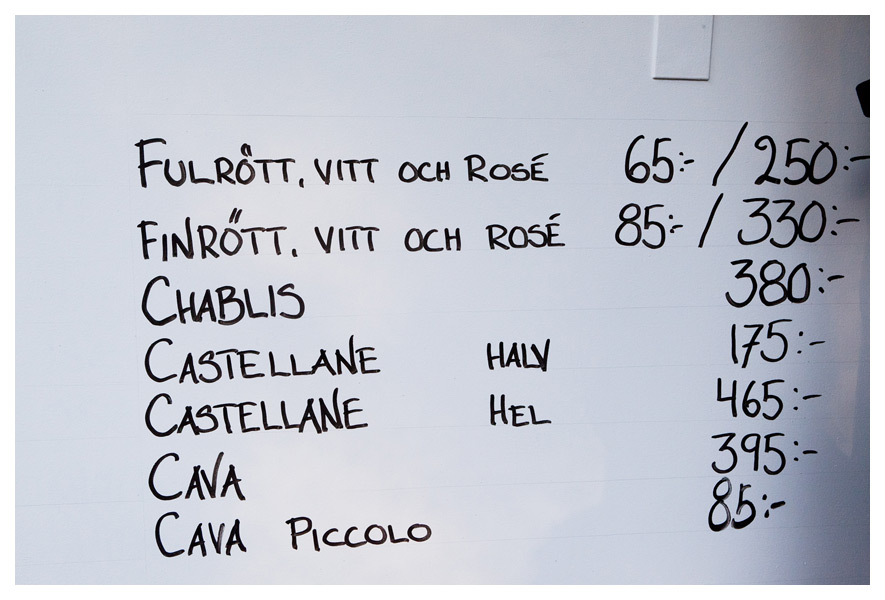 FULRÖTT, VITT OCH ROSÉ 65:- / 250:-
FINRÖTT, VITT OCH ROSÉ 85:- / 330:-
CHABLIS 380:-
CASTELLANE HALV 175:-
CASTELLANE HEL 465:-
CAVA 395:-
CAVA PICCOLO 85:-